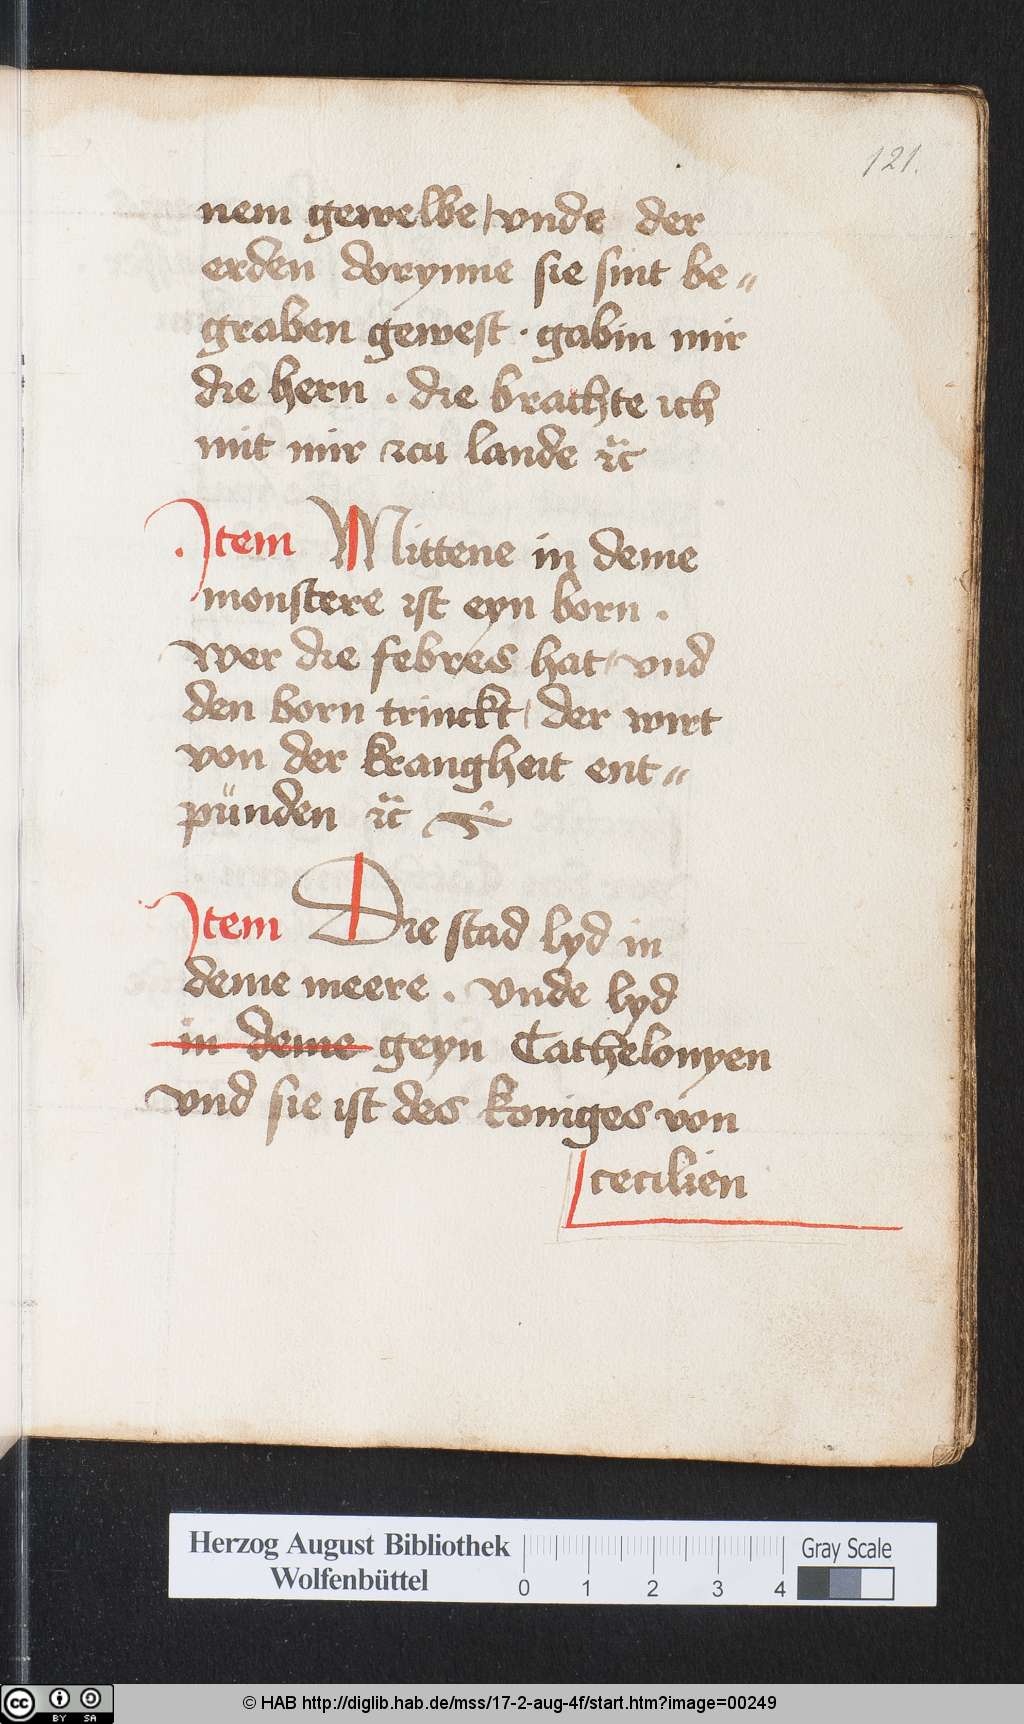 121.
nem gewelbe / vnde der
erden dorynne sie sint be„
graben gewest · gabin mir
die hern . die brachte ich
mit mir zcu lande ꝛc̈
Item Mittene in deme
monstere ist eyn born .
wer die febres hat / vnd
den born trinckt / der wirt
von der krangheit ent„
pünden ꝛc̈
Item Die stad lyd in
deme meere . vnde lyd
in deme geyn Cathelonyen
vnd sie ist des koniges von
cecilien
Herzog August Bibliothek
Wolfenbüttel
0 1 2 3 4
Gray Scale
cc BY SA
© HAB http://diglib.hab.de/mss/17-2-aug-4f/start.htm?image=00249